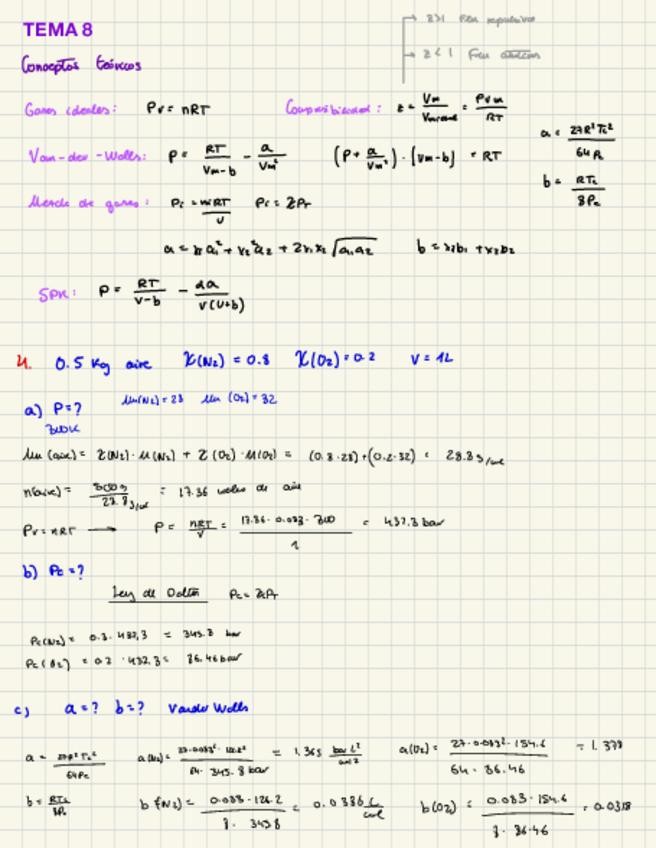 TEMA 8
z>1 Fzas repulsivas
z<1 Fzas
Conceptos teóricos
Gases ideales: Pv = nRT
Compresibilidad: z = Vm/Vm ideal = P Vm/RT
Van-der-Walls: P = RT/(Vm-b) - a/Vm² (P + a/Vm²)·(Vm-b) = RT
a = 27R²Tc²/64Pc
b = RTc/8Pc
Mezcla de gases: Pi = niRT/V Pi = χiPT
a = x₁²a₁ + x₂²a₂ + 2x₁x₂√a₁a₂ b = x₁b₁ + x₂b₂
SRK: P = RT/(v-b) - αa/v(v+b)
4. 0.5 Kg aire χ(N₂) = 0.8 χ(O₂) = 0.2 V = 1L
a) P = ? Mm(N₂) = 28 Mm (O₂) = 32
300K
Mm (aire) = χ(N₂)·M(N₂) + χ(O₂)·M(O₂) = (0.8·28)+(0.2·32) = 28.8 g/mol
n(aire) = 500g/28.8 g/mol = 17.36 moles de aire
Pv = nRT → P = nRT/V = 17.36·0.083·300/1 = 432.3 bar
b) Pi = ?
Ley de Dalton Pi = χiPT
Pi(N₂) = 0.8·432,3 = 345.8 bar
Pi(O₂) = 0.2·432,3 = 86.46 bar
c) a = ? b = ? Vander Walls
a = 27R²Tc²/64Pc a(N₂) = 27·0.083²·126.2²/64·345.8 bar = 1.365 bar L²/mol² a(O₂) = 27·0.083²·154.6/64·86.46 = 1.378
b = RTc/8Pc b(N₂) = 0.083·126.2/8·345.8 = 0.0386 L/mol b(O₂) = 0.083·154.6/8·86.46 = 0.0318